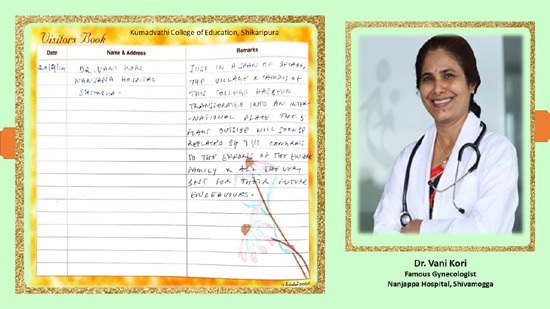 Kumadvathi College of Education, Shikaripura
Visitors Book
Date
Name & Address
Remarks
DR. VANI KORI
NANJAPPA HOSPITAL
SHIMOGA.
JUST IN A SPAN OF
THE VILLAGE & CAMPUS OF
THIS COLLEGE HAS BEEN
TRANSFORMED INTO AN INTER-
-NATIONAL PLACE THE 5
FLAGS OUTSIDE WILL SOON BE
REPLACED BY
TO THE EFFORTS OF THE ENTIRE
FAMILY & ALL THE VERY
BEST FOR THEIR FUTURE
ENDEAVOURS.
Dr. Vani Kori
Famous Gynecologist
Nanjappa Hospital, Shivamogga